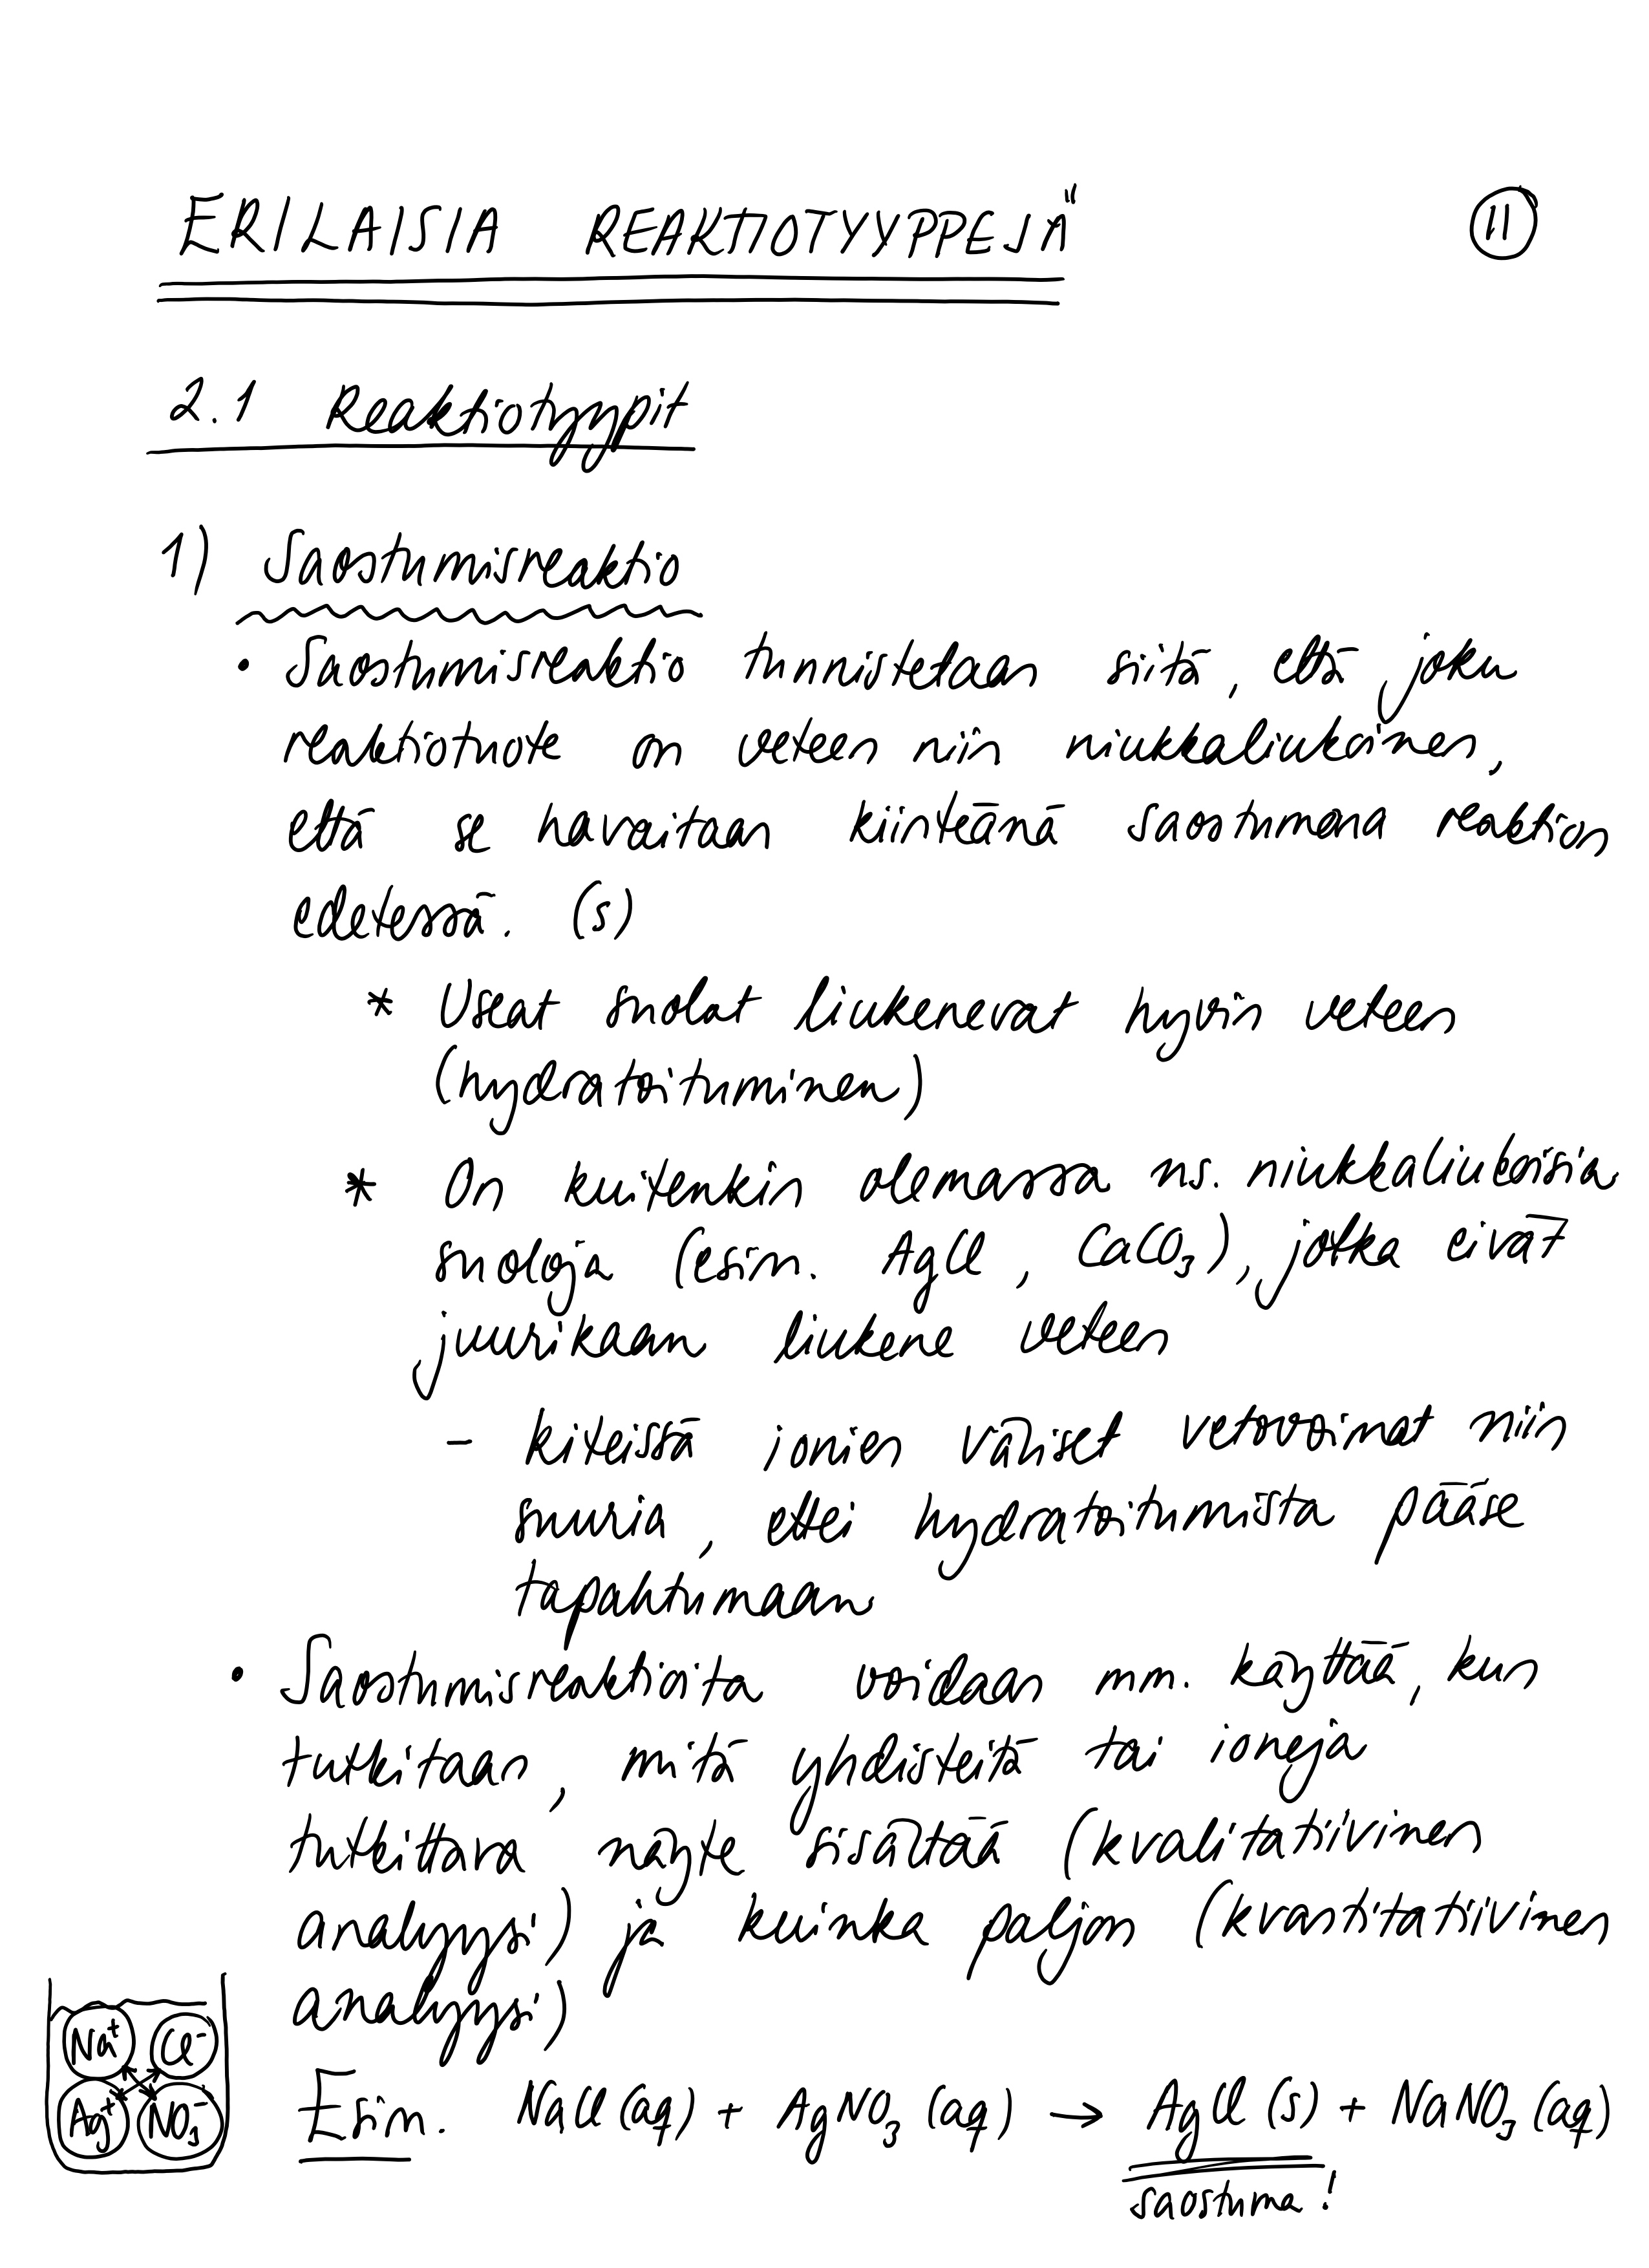 ERILAISIA REAKTIOTYYPPEJÄ
11
2.1 Reaktiotyypit
1) Saostumisreaktio
• Saostumisreaktio tunnistetaan siitä, että joku
reaktiotuote on veteen niin niukkaliukoinen,
että se havaitaan kiinteänä saostumana reaktion
edetessä. (s)
* Useat suolat liukenevat hyvin veteen
(hydratoituminen)
* On kuitenkin olemassa ns. niukkaliukoisia
suoloja (esim. AgCl, CaCO₃), jotka eivät
juurikaan liukene veteen
- kiteissä ionien väliset vetovoimat niin
suuria, ettei hydratoitumista pääse
tapahtumaan
• Saostumisreaktioita voidaan mm. käyttää, kun
tutkitaan, mitä yhdisteitä tai ioneja
tutkittava näyte sisältää (kvalitatiivinen
analyysi) ja kuinka paljon (kvantitatiivinen
analyysi)
Na⁺ Cl⁻
Ag⁺ NO₃⁻
Esim. NaCl (aq) + AgNO₃ (aq) → AgCl (s) + NaNO₃ (aq)
saostuma!